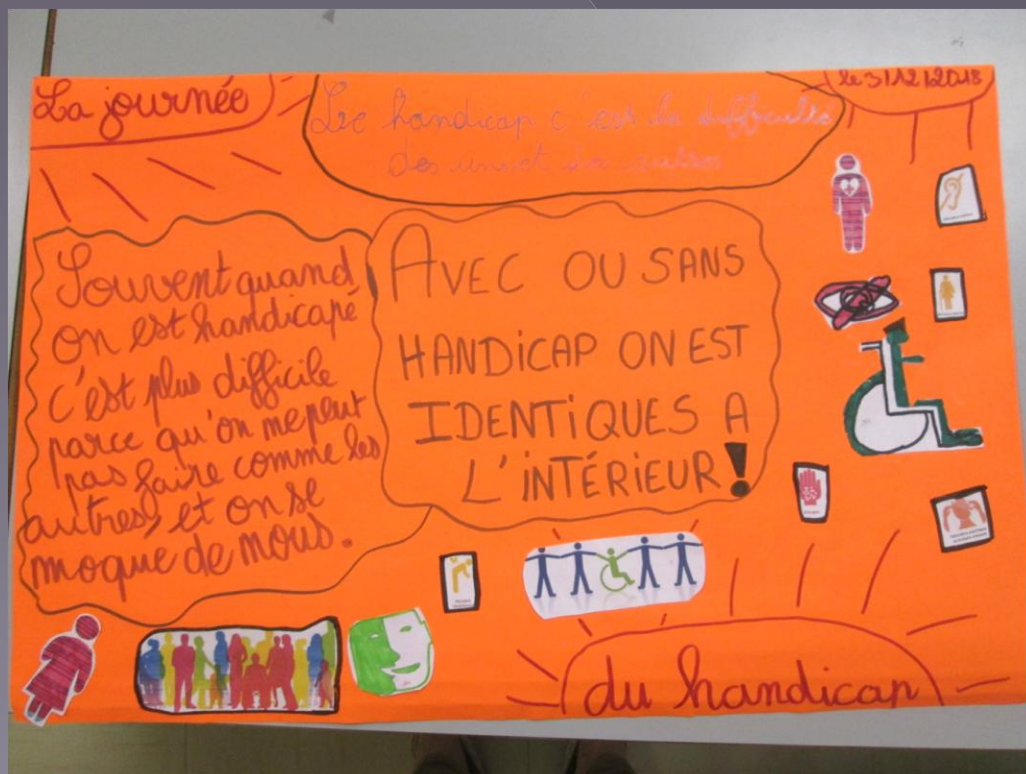 La journée
le 3/12/2018
Le handicap c'est la difficulté
des uns et des autres
Souvent quand
on est handicapé
c'est plus difficile
parce qu'on ne peut
pas faire comme les
autres, et on se
moque de nous.
AVEC OU SANS
HANDICAP ON EST
IDENTIQUES A
L'INTÉRIEUR!
du handicap